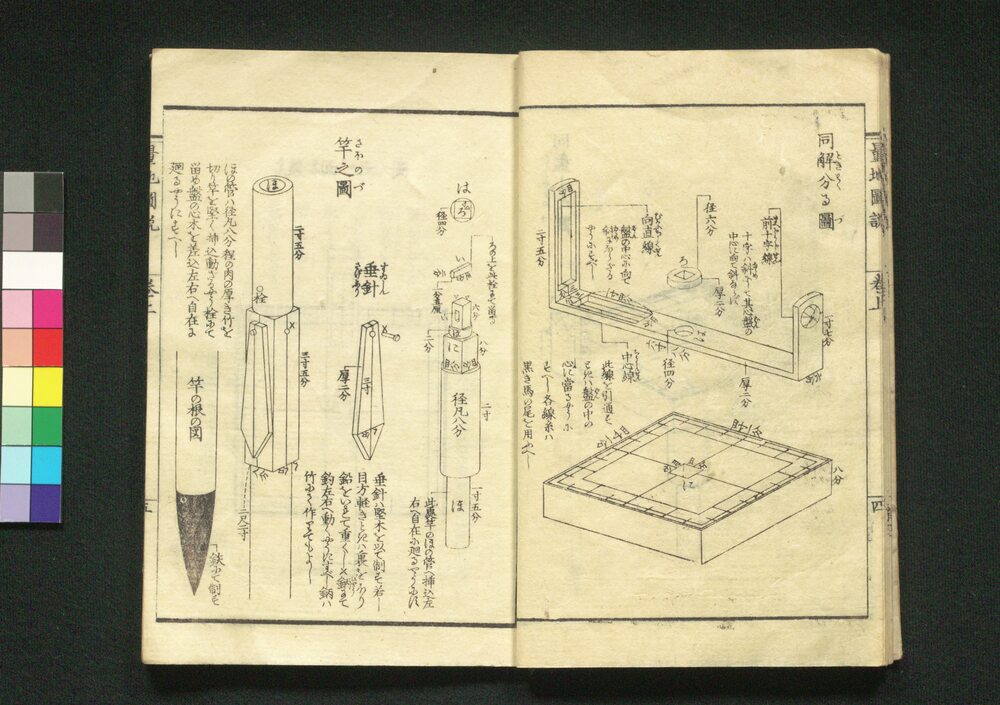 量地圖説
巻上
四
同解分る圖
ときわくづ
前十字線
十字ハ斜ニして其心盤の
中心に向て斜なるべし
一寸七分
径六分
ろ
厚二分
向直線
盤の中心に向て
二寸五分
径四分
厚二分
中心線
此線を引通す
ときハ盤の中の
心に當るやうに
すべし各線糸ハ
黒き馬の尾を用ゆべし
八分
に
は
径四分
ろ
い
六分
八分
二分
に
径凡八分
二寸
一寸五分
ほ
此處竿のほの管へ挿込左
右へ自在に廻るやうにす
竿之圖
さをのづ
垂針
厚二分
三寸
垂針ハ堅木を以て制す若し
目方軽きときハ裏をゑり
鉛をいれて重くし×鋲にて
釣左右へ動くやうにすべし鋲ハ
竹にて作りてもよし
ほ
二寸五分
栓
三寸五分
二尺二寸
ほの管ハ径凡八分程の肉の厚き竹を
切り竿を堅く挿込動ざるやう栓にて
留め盤の心木を差込左右へ自在に
廻るやうにすべし
竿の根の図
鉄にて制す
量地圖説
巻上
五